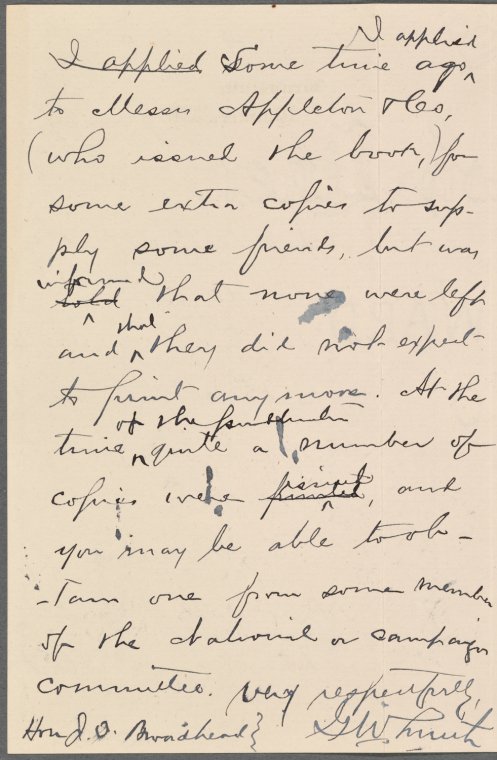 I applied
I applied Some time ago
to Messrs Appleton & Co,
(who issued the book,) for
some extra copies to sup-
ply some friends, but was
informed
told that none were left
that
and they did not expect
to print any more. At the
of the
time quite a number of
issued
copies were printed, and
you may be able to ob-
-tain one from some member
of the National or campaign
committee. Very respectfully,
Hon J. O. Broadhead}